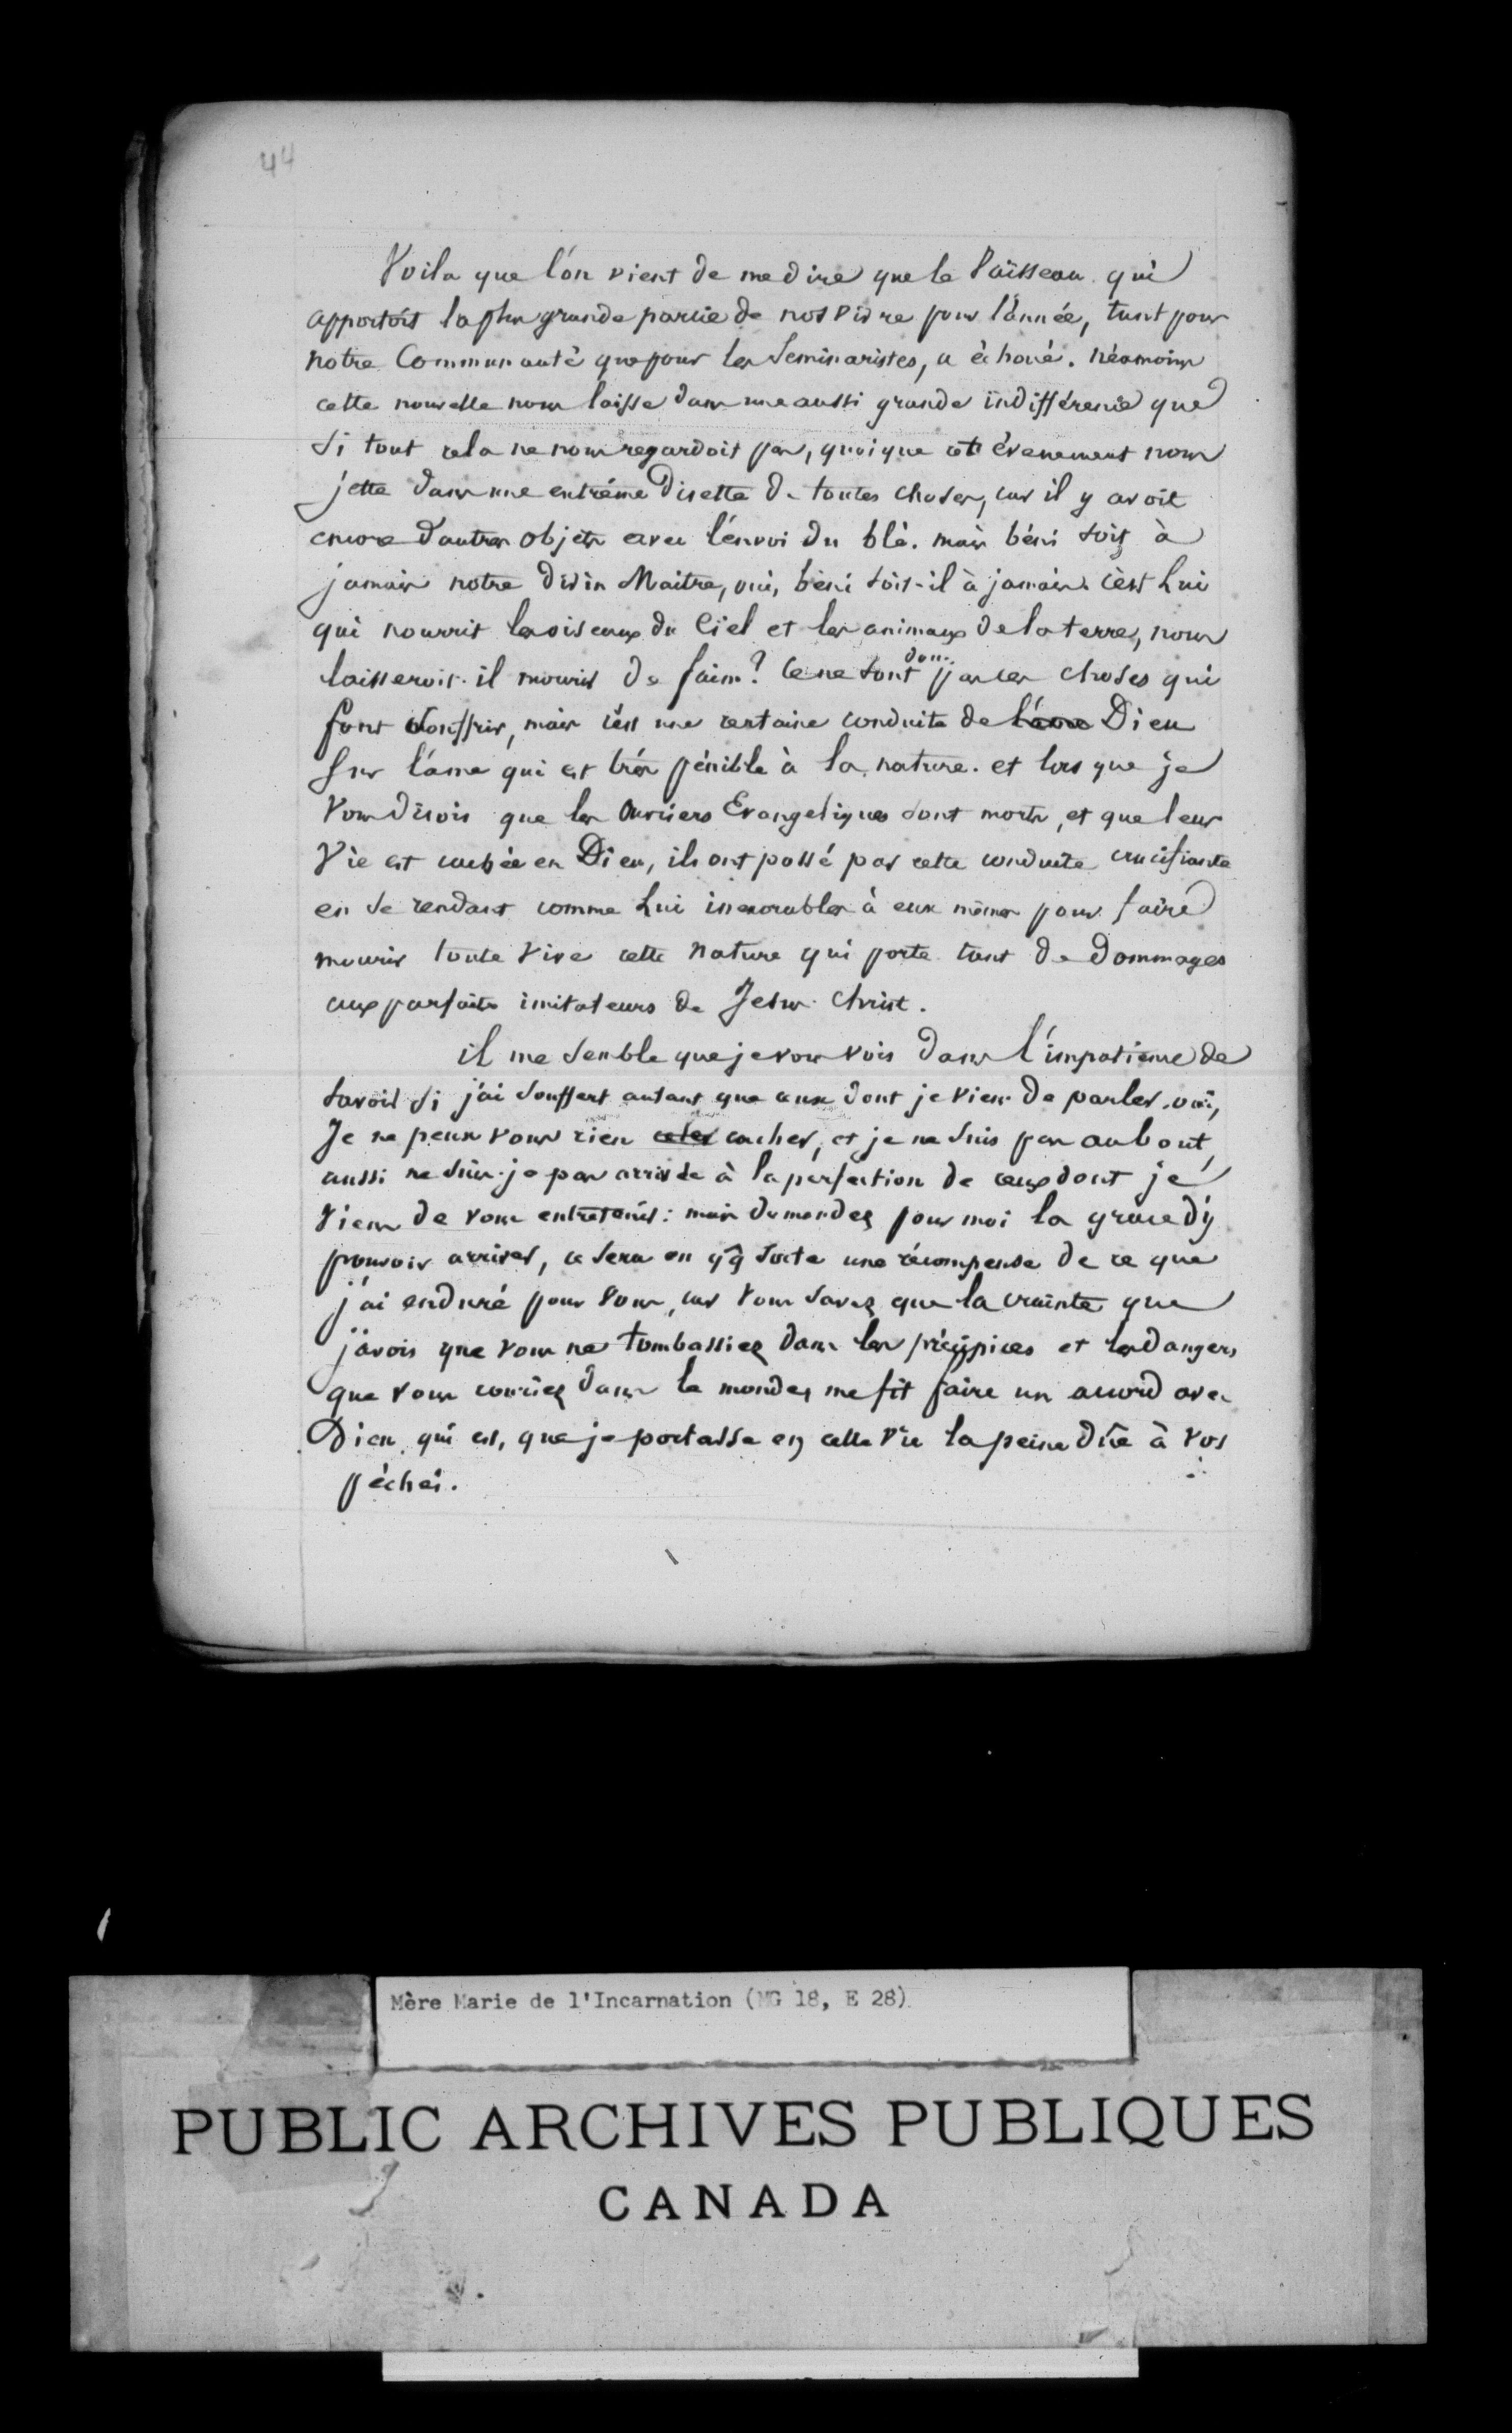 44
Voila que l'on vient de me dire que le Vaisseau qui
apportoit la plus grande partie de nos vivre pour l'année, tant pour
notre Communauté que pour les Seminaristes, a échoué. néamoins
cette nouvelle nous laisse dans une aussi grande indifférence que
si tout cela ne nous regardoit pas, quoique cet évenement nous
jette dans une extrême disette de toutes choses, car il y avoit
encore d'autres objets avec l'envoi du blé. mais béni soit à
jamais notre divin Maitre, oui, béni soit-il à jamais. c'est Lui
qui nourrit les oiseaux du Ciel et les animaux de la terre, nous
laisseroit-il mourir de faim? Ce ne sont donc pas ces choses qui
font souffrir, mais c'est une certaine conduite de l'ame Dieu
sur l'ame qui est très pénible à la nature. et lors que je
vous disois que les Ouvriers Evangeliques sont morts, et que leur
vie est cachée en Dieu, ils ont passé par cette conduite crucifiante
en se rendant comme Lui inexorables à eux mêmes pour faire
mourir toute vive cette nature qui porte tant de dommages
aux parfaits imitateurs de Jesus-Christ.
il me semble que je vous vois dans l'impatience de
savoir si j'ai souffert autant que ceux dont je viens de parler. oui,
Je ne peux vous rien celer cacher, et je ne suis pas au bout,
aussi ne suis-je pas arrivée à la perfection de ceux dont je
viens de vous entretenir: mais demandez pour moi la grace d'y
pouvoir arriver, ce sera en qq sorte une récompense de ce que
j'ai enduré pour vous, car vous savez que la crainte que
j'avois que vous ne tombassiez dans les précipices et les dangers
que vous couriez dans le monde, me fit faire un accord avec
Dieu qui est, que je portasse en cette vie la peine dûe à vos
péchés.
Mère Marie de l'Incarnation (MG 18, E 28)
PUBLIC ARCHIVES PUBLIQUES
CANADA